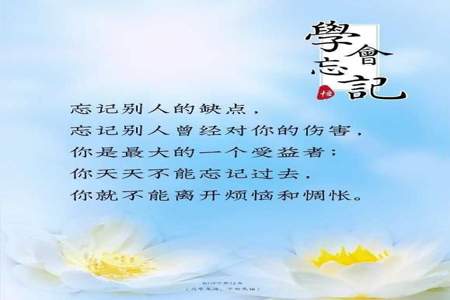 學會忘記
忘记别人的缺点，
忘记别人曾经对你的伤害，
你是最大的一个受益者；
你天天不能忘记过去，
你就不能离开烦恼和惆怅。